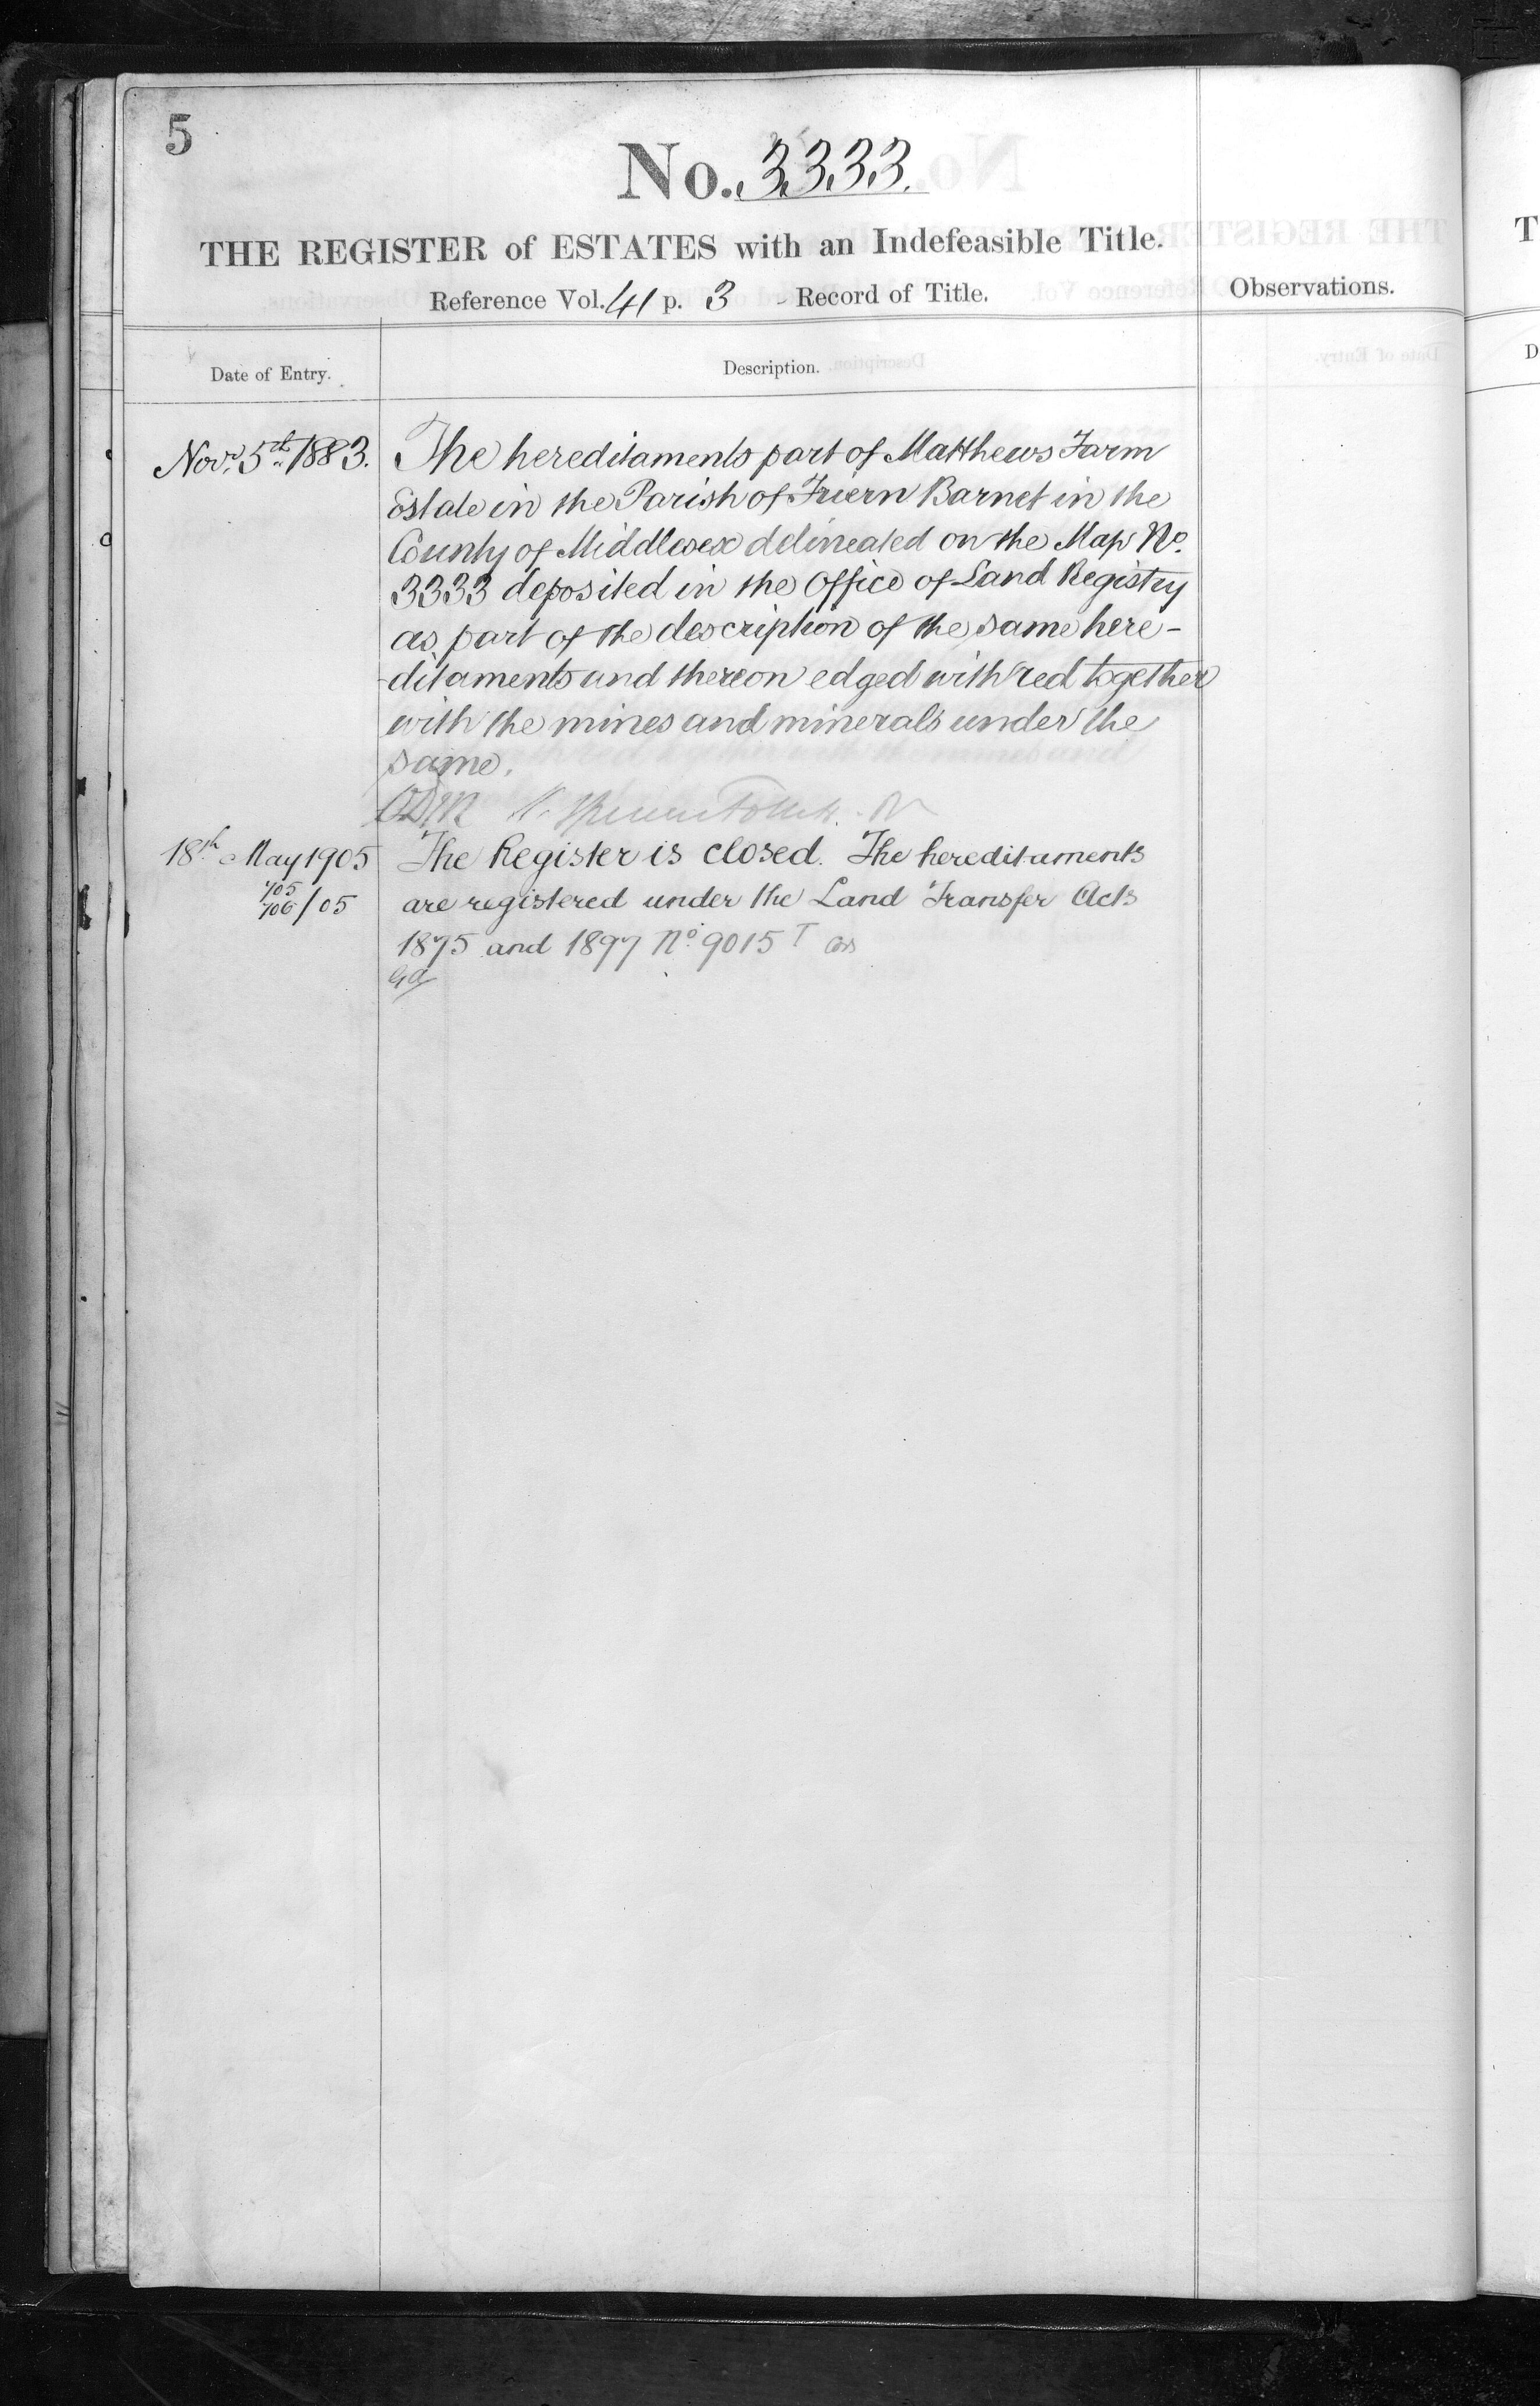 5
No. 3333.
THE REGISTER of ESTATES with an Indefeasible Title.
Reference Vol. 41 p. 3 Record of Title.
Observations.
Date of Entry.
Description.
Novr. 5th 1883.
The hereditaments part of Matthews Farm
Estate in the Parish of Friern Barnet in the
County of Middlesex delineated on the Map No.
3333 deposited in the Office of Land Registry
as part of the description of the same here-
-ditaments and thereon edged with red together
with the mines and minerals under the
same.
18th May 1905
705
706/05
The Register is closed. The hereditaments
are registered under the Land Transfer Acts
1875 and 1897 No. 9015